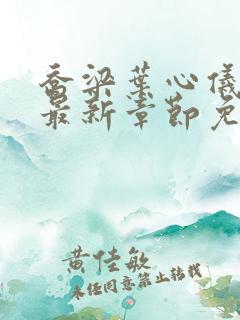 乔梁叶心仪
最新章节免
黄佳敏
未经同意禁止转载